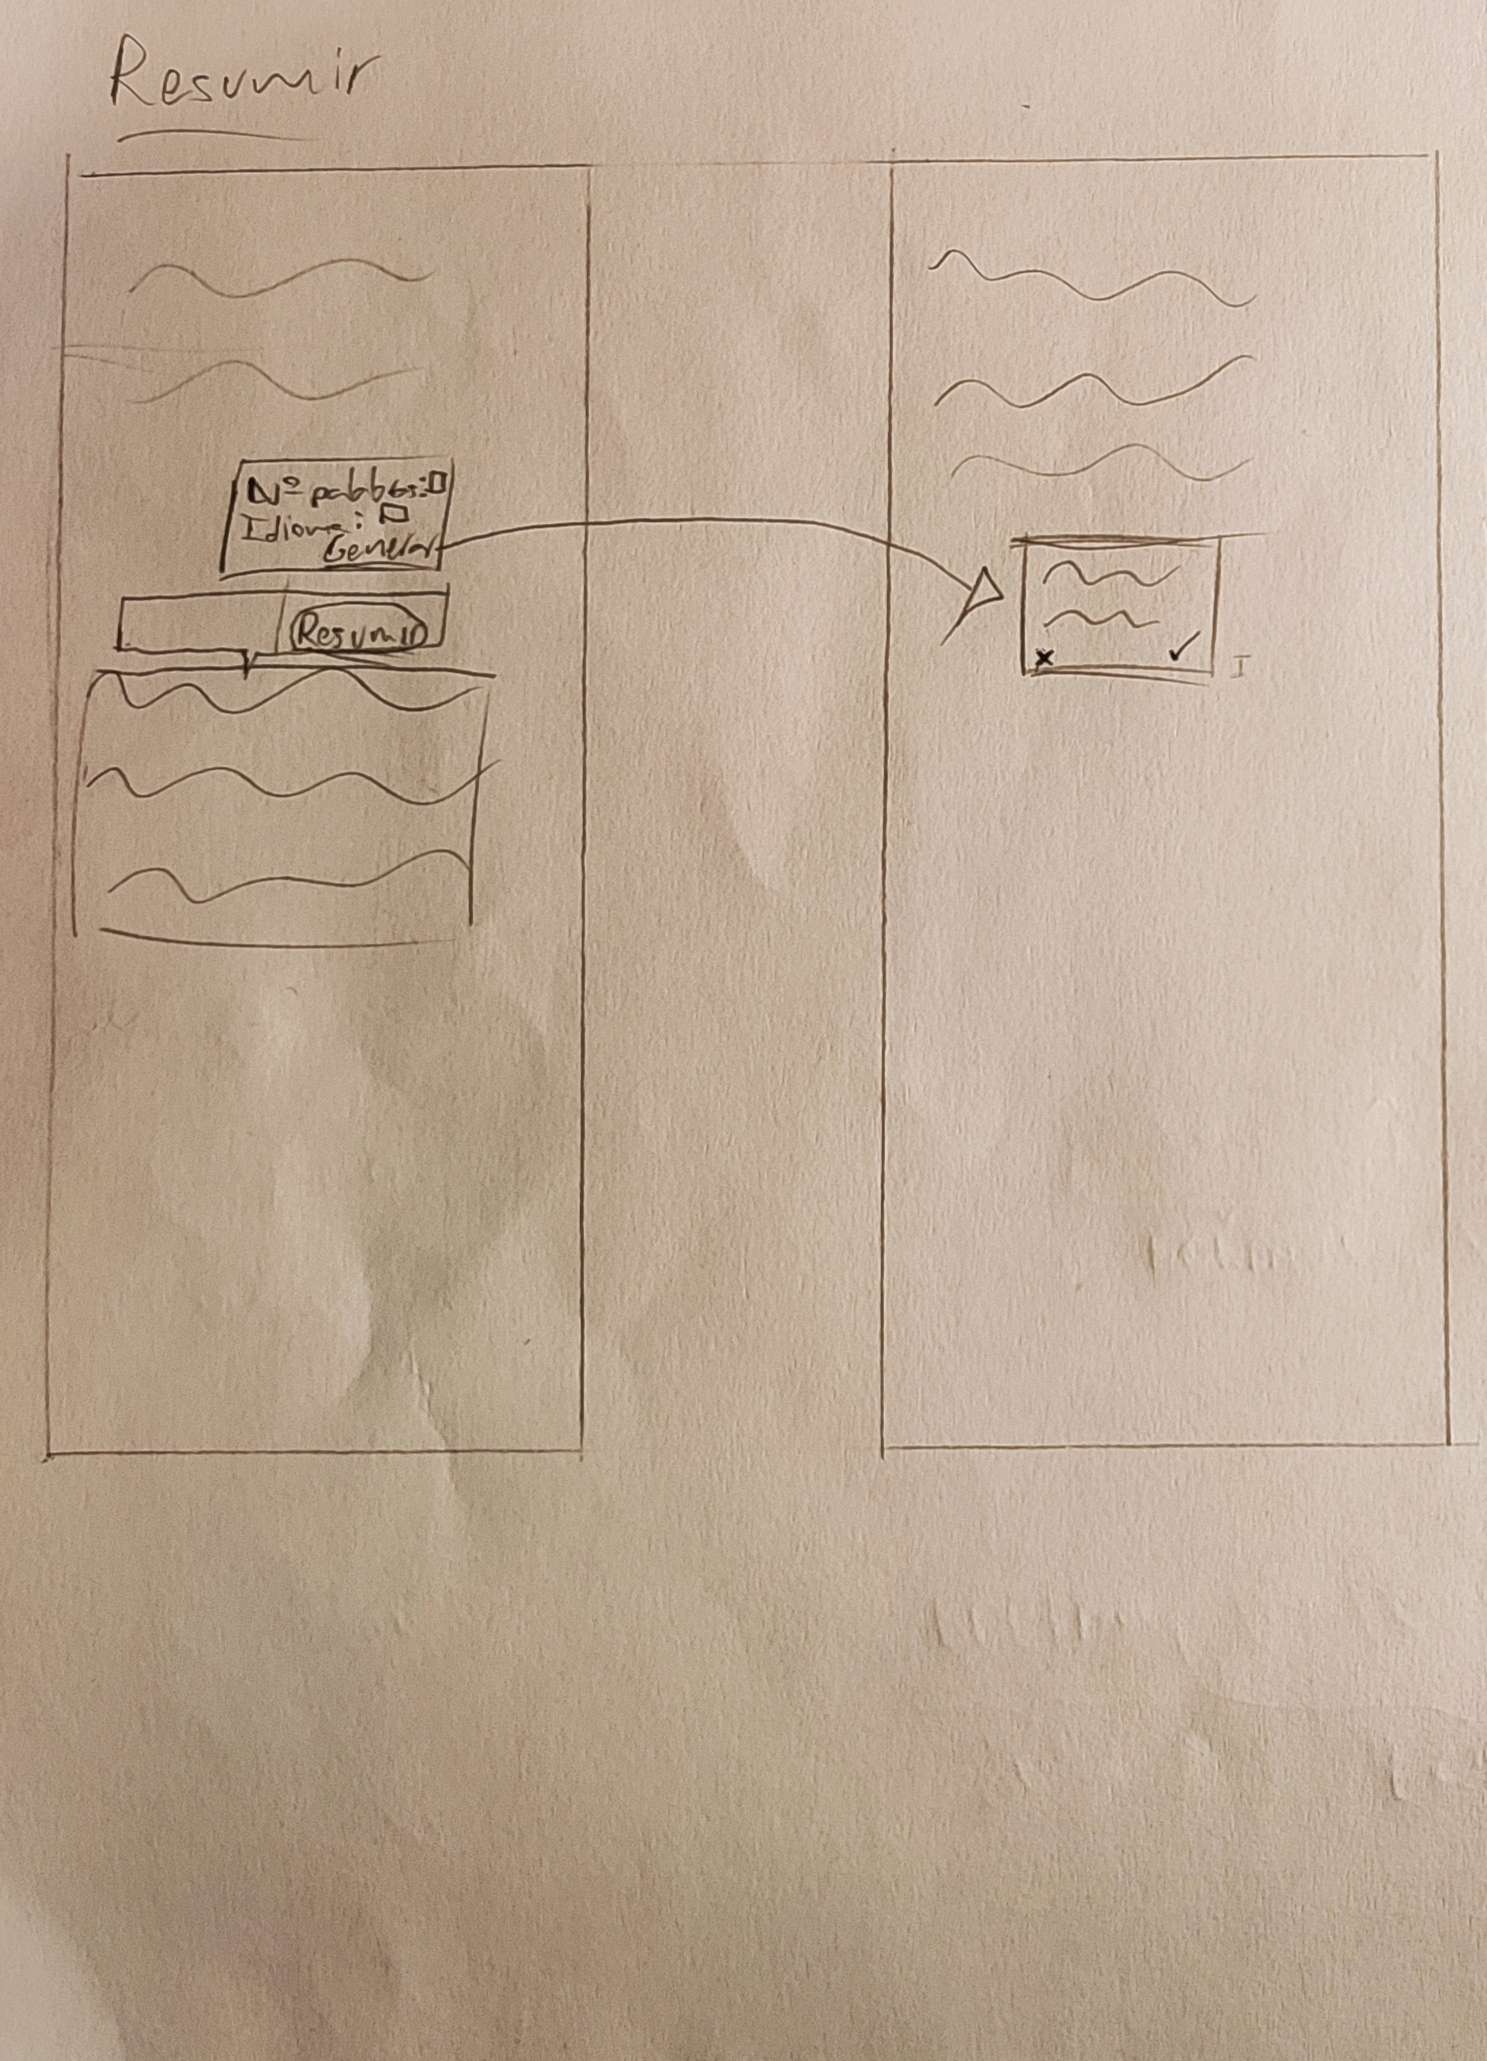 Resumir
Nº palabras:
Idioma:
Generar
Resumir